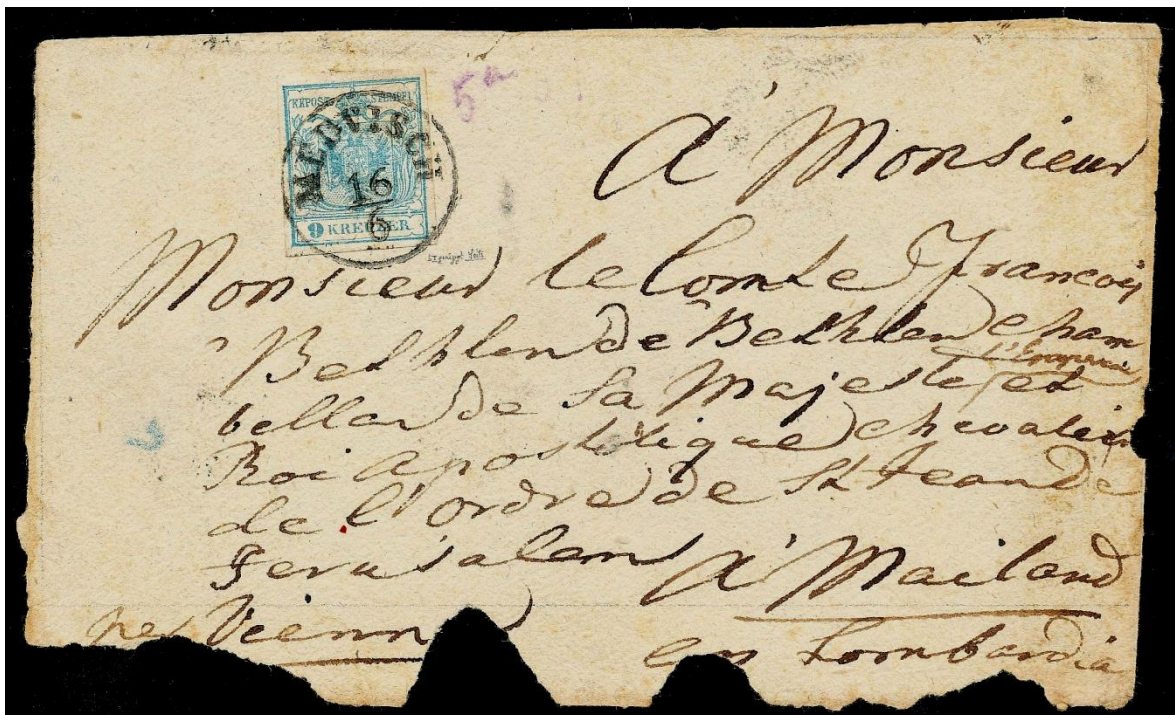 KKPOST-STEMPEL
MEDVISCH
16
6
9 KREUZER
5
A' Monsieur
Monsieur le Comte François
Bethlen de Bethlen Cham
bellan de Sa Majesté
l'Empereur et
Roi Apostolique chevalier
de l'Ordre de St Jean de
Jerusalem A' Mailand
per Vienn
en Lombardia